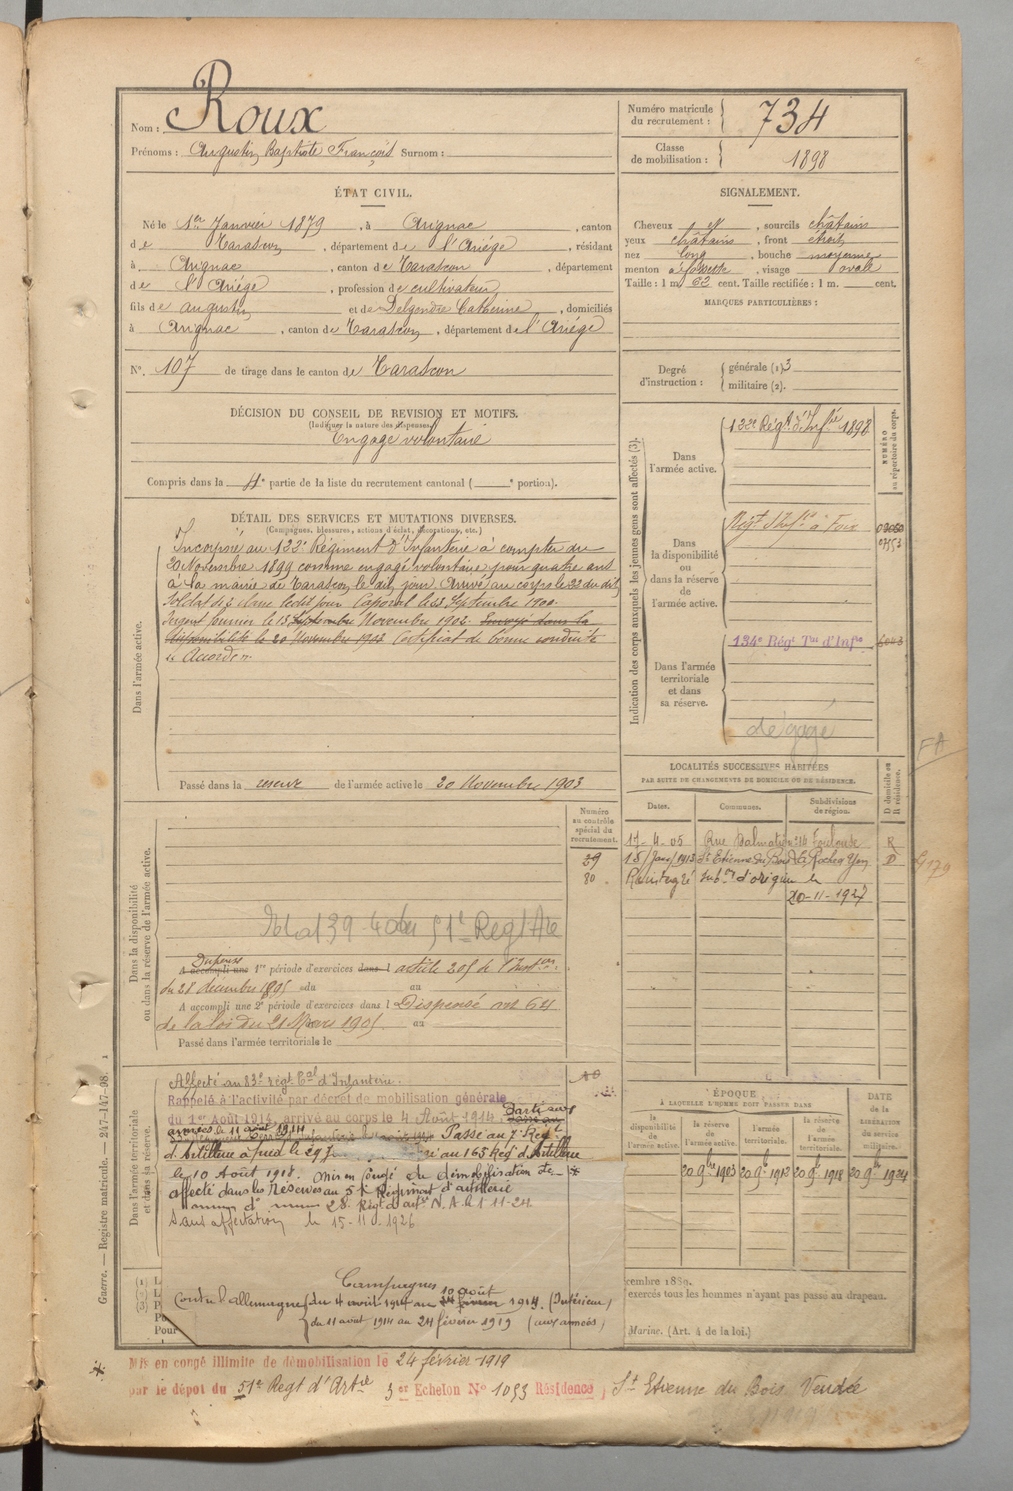 Nom : Roux
Prénoms : Augustin Baptiste François Surnom :
Numéro matricule du recrutement : 734
Classe de mobilisation : 1898
ÉTAT CIVIL.
Né le 1er Janvier 1879, à Arignac, canton
de Tarascon, département de l'Ariège, résidant
à Arignac, canton de Tarascon, département
de l'Ariège, profession de cultivateur,
fils de Augustin et de Delgendre Catherine, domiciliés
à Arignac, canton de Tarascon, département de l'Ariège
N°. 107 de tirage dans le canton de Tarascon
SIGNALEMENT.
Cheveux et, sourcils châtains
yeux châtains, front étroit
nez long, bouche moyenne
menton à fossette, visage ovale
Taille : 1 m. 62 cent. Taille rectifiée : 1 m. cent.
MARQUES PARTICULIÈRES :
Degré d'instruction : générale (1) 3
militaire (2).
DÉCISION DU CONSEIL DE REVISION ET MOTIFS.
(Indiquer la nature des dispenses.)
Engagé volontaire
Compris dans la 4e partie de la liste du recrutement cantonal ( e portion).
DÉTAIL DES SERVICES ET MUTATIONS DIVERSES.
(Campagnes, blessures, actions d'éclat, décorations, etc.)
Dans l'armée active.
Incorporé au 122e Régiment d'Infanterie à compter du
20 Novembre 1899 comme engagé volontaire pour quatre ans
à la mairie de Tarascon le dit jour. Arrivé au corps le 22 du dit,
Soldat de 2e classe ledit jour Caporal le 23 Septembre 1900.
Sergent fourrier le 15 Septembre Novembre 1902. Envoyé dans la
disponibilité le 20 Novembre 1903 Certificat de bonne conduite
" Accordé "
Passé dans la réserve de l'armée active le 20 Novembre 1903
Indication des corps auxquels les jeunes gens sont affectés (3).
NUMÉRO au répertoire du corps.
Dans l'armée active.
122e Régt d'Infie 1898
Dans la disponibilité ou dans la réserve de l'armée active.
Régt d'Infie à Foix
Dans l'armée territoriale et dans sa réserve.
134e Régt Tal d'Infie
dégagé
LOCALITÉS SUCCESSIVES HABITÉES
PAR SUITE DE CHANGEMENTS DE DOMICILE OU DE RÉSIDENCE.
Dates. Communes. Subdivisions de région. D domicile ou R résidence.
17-4-05 Rue Dalmatie n° 14 Toulouse R
18/Janv/1913 St Etienne du Bois La Roche s/ Yon D
Réintégré Subon d'origine le
20-11-1927
FA
Dans la disponibilité ou dans la réserve de l'armée active.
Numéro au contrôle spécial du recrutement.
29
80
Dispensé
A accompli une 1re période d'exercices dans l article 205 de l'Inston
du 28 décembre 1895 du au
A accompli une 2e période d'exercices dans l Dispensé art 64
de la loi du 21 Mars 1905 au
Passé dans l'armée territoriale le
Dans l'armée territoriale et dans sa réserve.
Affecté au 83e régt Tal d'Infanterie.
Rappelé à l'activité par décret de mobilisation générale
du 1er Août 1914, arrivé au corps le 4 Août 1914. Parti aux
armées le 11 août 1914 Passé au 7e Régt
d'Artillerie à pied le 29 au 165 Rég d'Artillerie
le 10 Août 1918. Mis en congé de démobilisation *
affecté dans les Réserves au 51 Régiment d'artillerie
28 Régt d'artie N.A. le 1-11-24.
Sans affectation le 15-11-1926
Campagnes
Contre l'allemagne du 4 août 1914 au 10 août 1914. (Intérieur)
du 11 août 1914 au 24 février 1919 (aux armées)
ÉPOQUE
À LAQUELLE L'HOMME DOIT PASSER DANS
la disponibilité de l'armée active. la réserve de l'armée active. l'armée territoriale. la réserve de l'armée territoriale. DATE de la LIBÉRATION du service militaire.
20 9bre 1903 20 9b 1913 20 9b 1918 20 9b 1924
cembre 1889.
exercés tous les hommes n'ayant pas passé au drapeau.
Marine. (Art. 4 de la loi.)
Guerre. — Registre matricule. — 247-147-98.
* Mis en congé illimité de démobilisation le 24 février 1919
par le dépot du 51e Regt d'Artie 3er Echelon N° 1093 Résidence, St Etienne du Bois Vendée